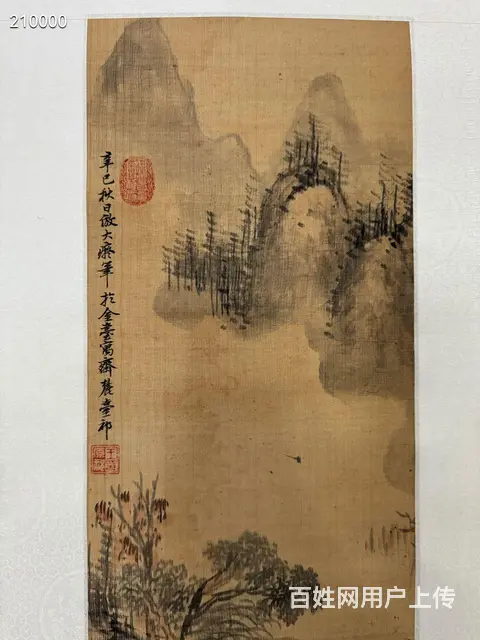 210000
辛巳秋日倣大癡筆於金臺寓齋麓臺祁
百姓网用户上传